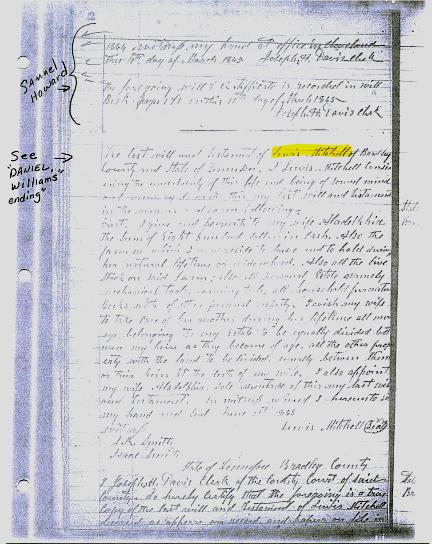 Samuel
Howard
1864 my hand at office in Cleveland
this 10th day of March 1865 Joseph H. Davis Clerk
The foregoing will & certificate is recorded in will
Book page this 10th day of March 1865
Joseph H Davis Clerk
See
"DANIEL
Williams"
ending"
The last will and testament of Lewis Mitchell of Bradley
County and State of Tennessee. I Lewis Mitchell consid-
ering the uncertainty of this life and being of sound mind
and memory do make this my last will and testament
in the manner and form following.
First, I give and bequeath to my wife
the Sum of Eight hundred dollars in Cash. Also the
farm on which I now reside to have and to hold during
her natural lifetime or widowhood. Also all the live
Stock on said farm; also all personal Estate namely
mechanical tools, all household furniture
I wish my wife
to take care of her mother during her lifetime all mon-
eys belonging to my Estate to be equally divided bet
ween my heirs as they become of age, all the other prop-
erty with the land to be divided equally between them
or their heirs at the death of my wife. I also appoint
my wife Sole of this my last will
and testament. In witness whereof I hereunto set
my hand and Seal June 1st
Lewis Mitchell Seal
Smith
Isaac Smith
State of Tennessee Bradley County
I Joseph H. Davis Clerk of the County Court of said
County do hereby certify that the foregoing is a true
Copy of the last will and testament of Lewis Mitchell
deceased as appears on record and papers on file in